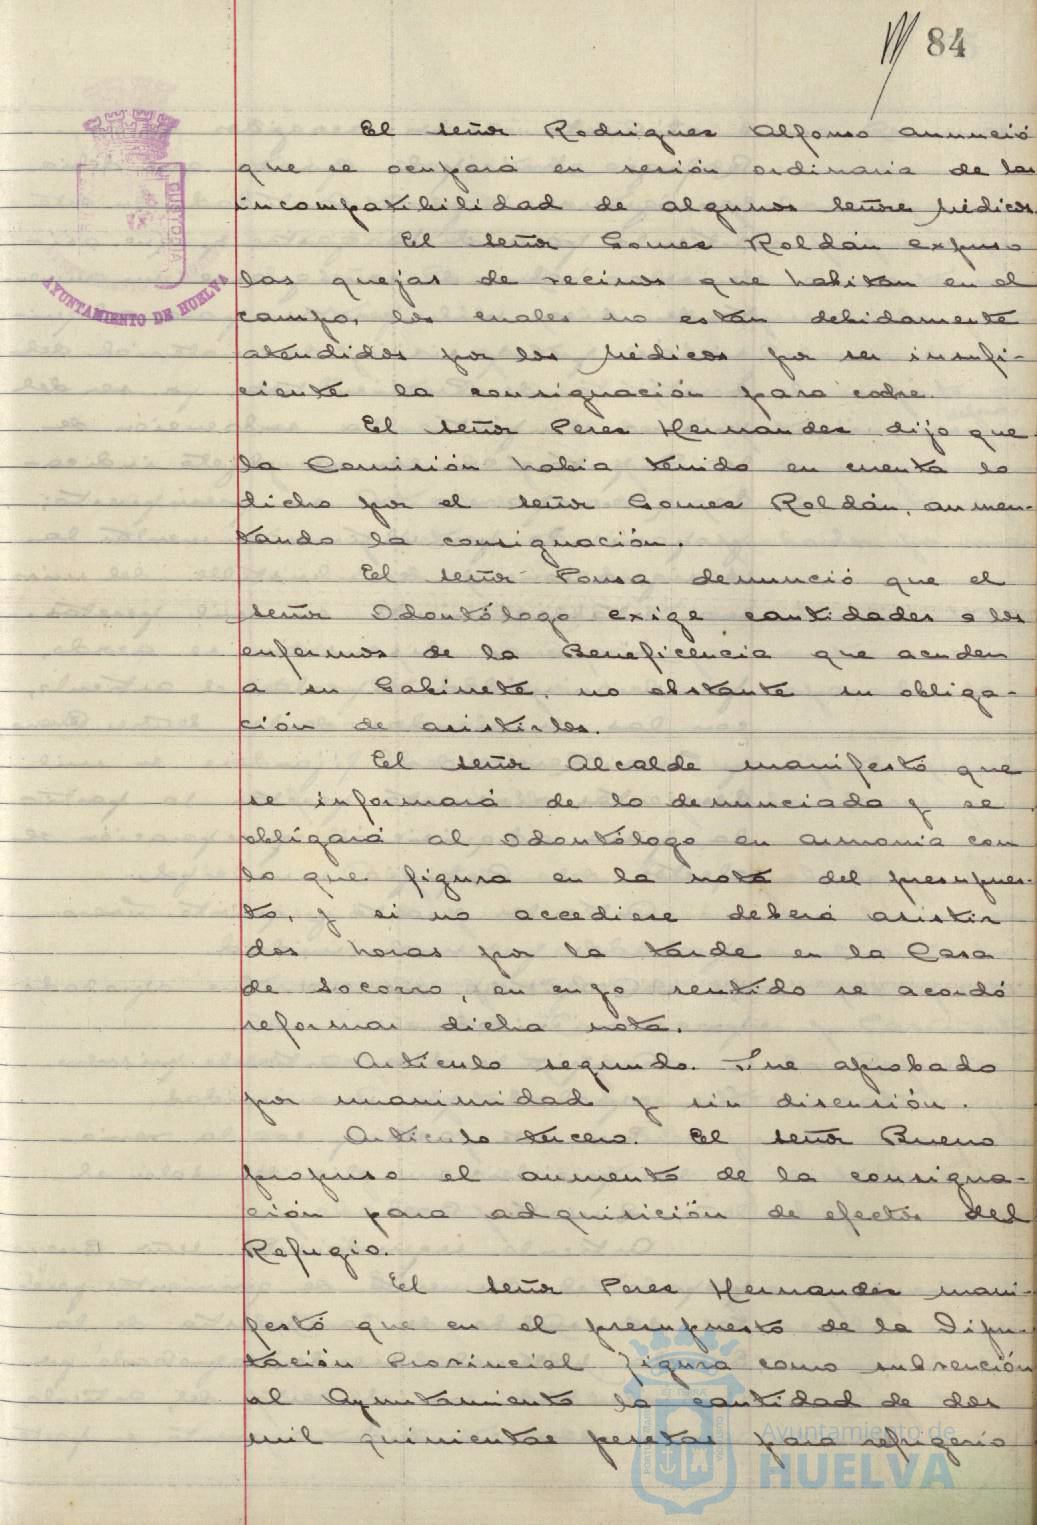 84
El señor Rodriguez Alfonso anunció
que se ocupará en sesión ordinaria de las
incompatibilidad de algunos señores Médicos.
El señor Gomez Roldán expuso
las quejas de vecinos que habitan en el
campo, los cuales no están debidamente
atendidos por los Médicos por ser insufi-
ciente la consignación para coche.
El señor Perez Hernandez dijo que
la Comisión habia tenido en cuenta lo
dicho por el señor Gomez Roldán, aumen-
tando la consignación.
El señor Ponsa denunció que el
señor Odontólogo exige cantidades a los
enfermos de la Beneficencia que acuden
a su Gabinete, no obstante su obliga-
ción de asistirlos.
El señor Alcalde manifestó que
se informará de lo denunciado y se
obligará al Odontólogo en armonia con
lo que figura en la nota del presupues-
to, y si no accediese deberá asistir
dos horas por la tarde en la Casa
de Socorro, en cuyo sentido se acordó
reformar dicha nota.
Artículo segundo. Fue aprobado
por unanimidad y sin discusión.
Artículo tercero. El señor Bueno
propuso el aumento de la consigna-
ción para adquisición de efectos del
Refugio.
El señor Perez Hernandez mani-
festó que en el presupuesto de la Dipu-
tación Provincial figura como subvención
al Ayuntamiento la cantidad de dos
mil quinientas pesetas para refrigerio
AYUNTAMIENTO DE HUELVA
Ayuntamiento de
HUELVA